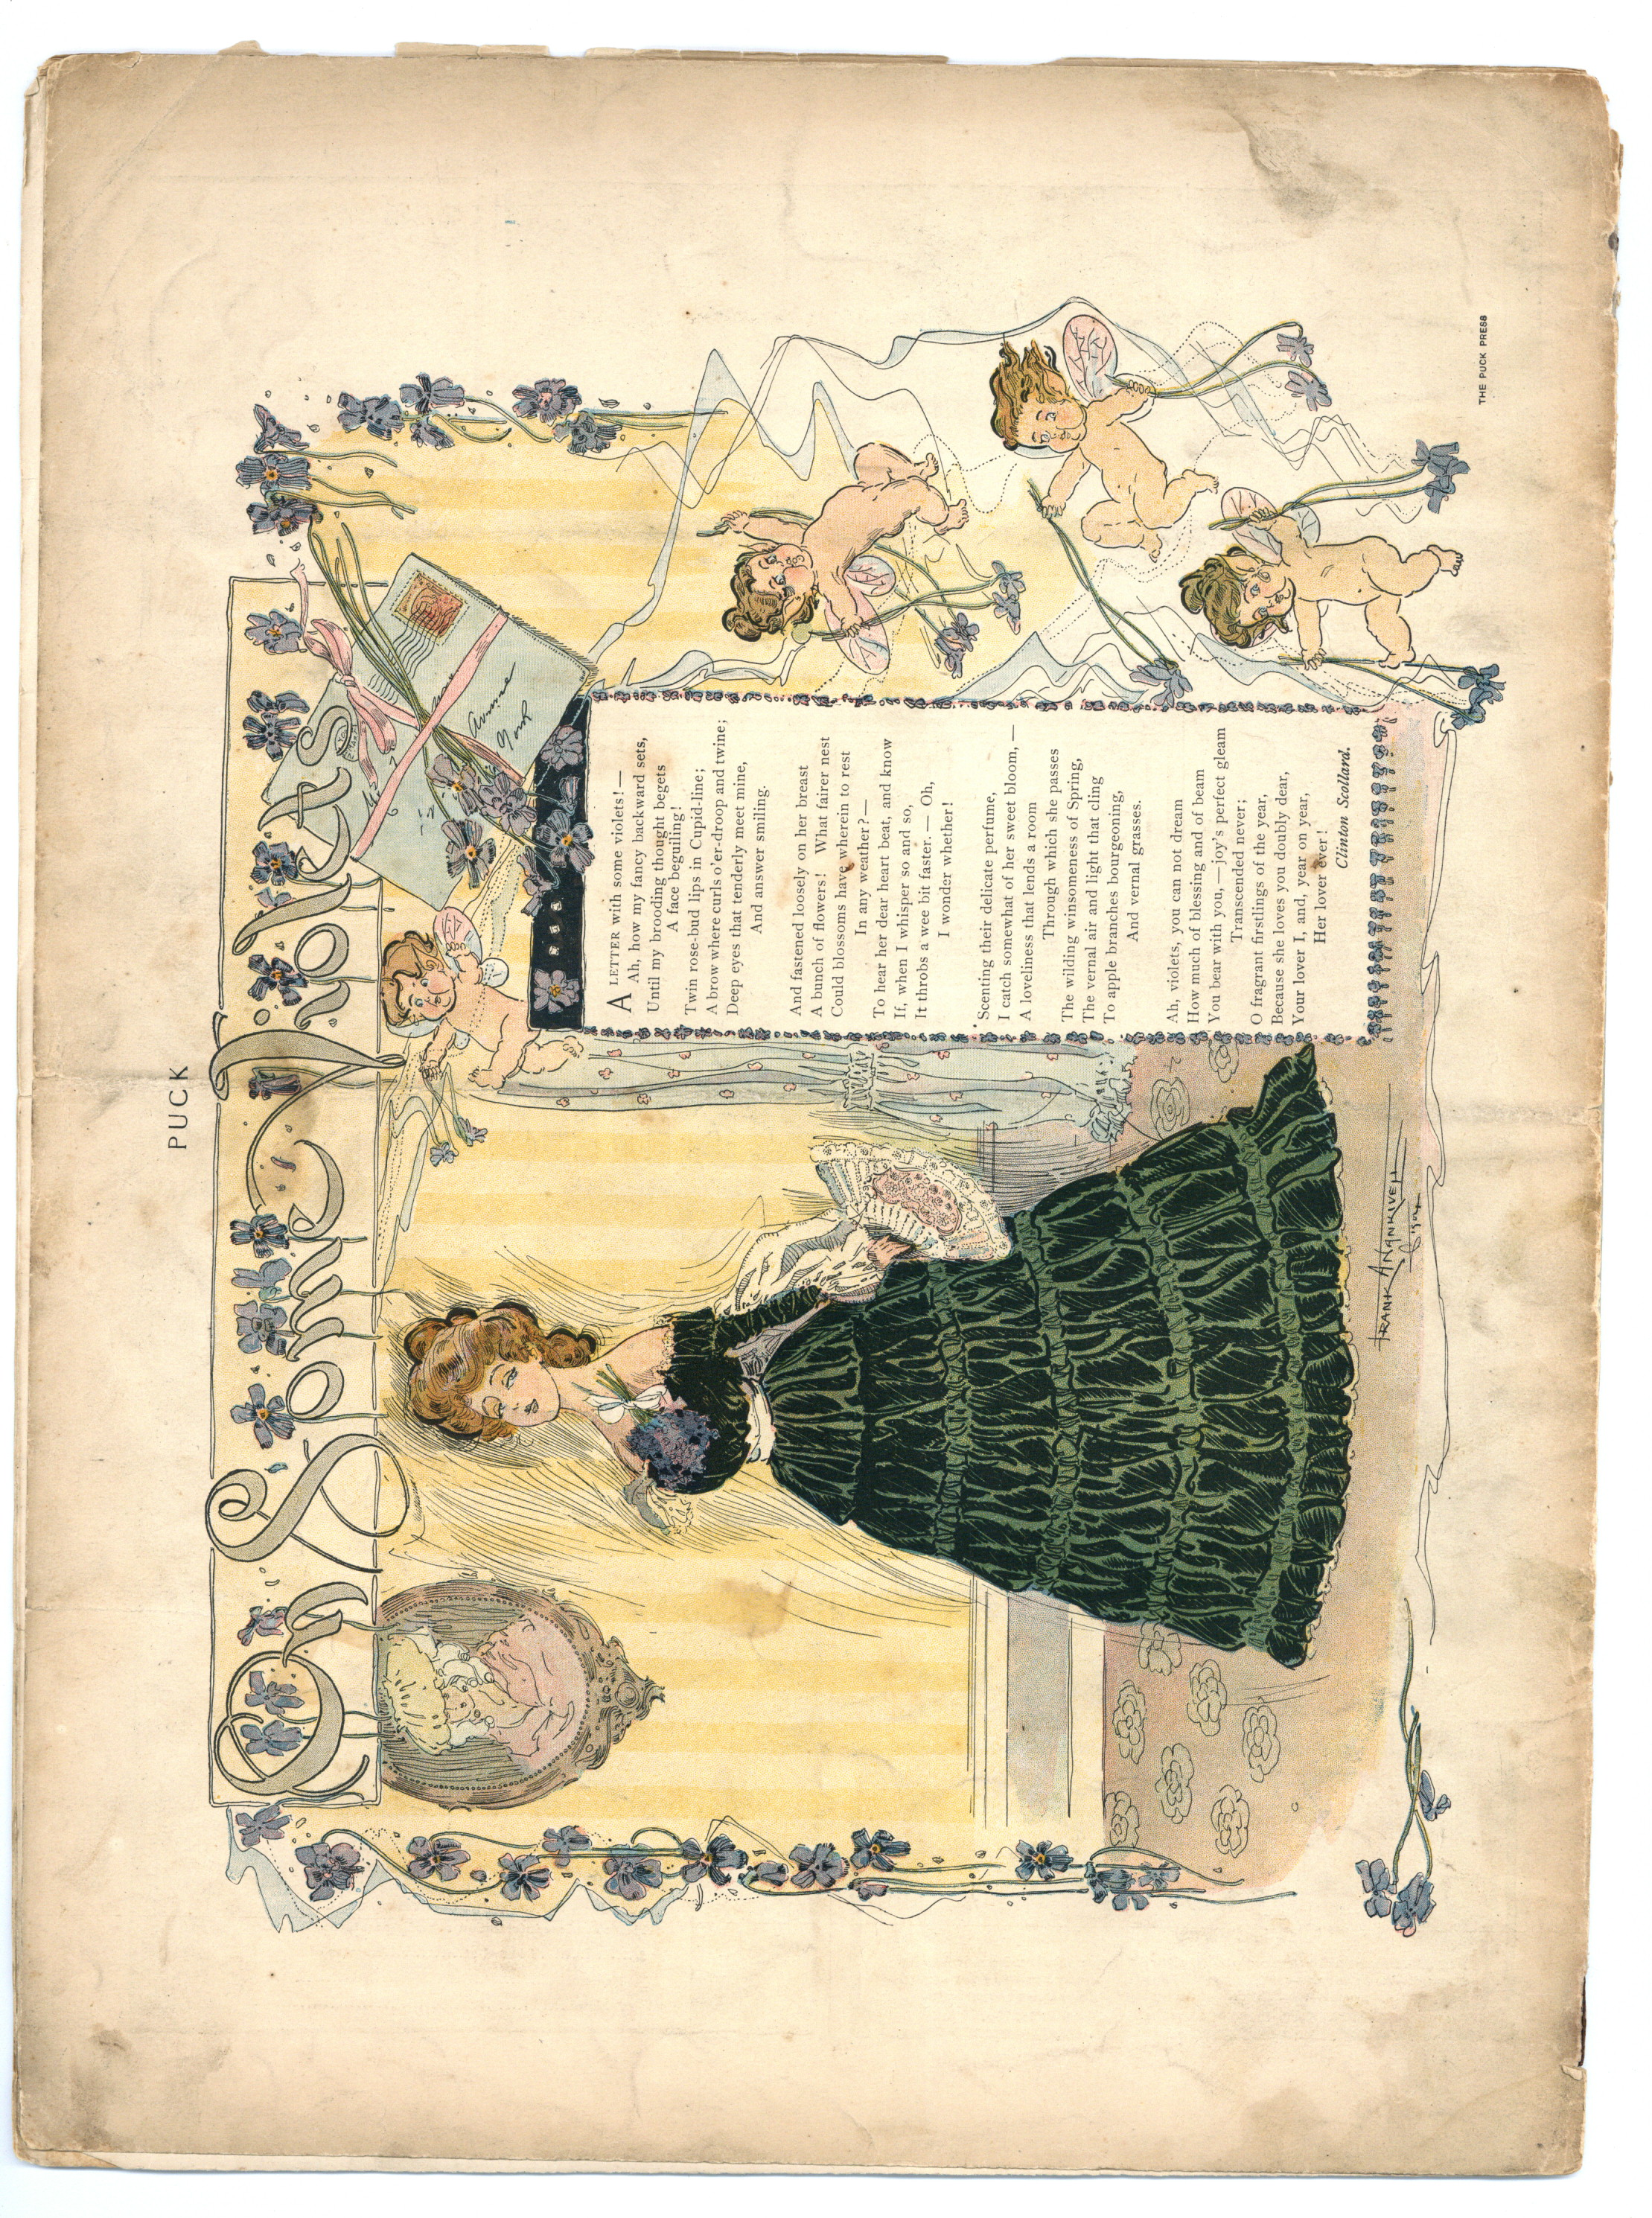 PUCK
To Some Violets
Avenue
York
A LETTER with some violets! —
Ah, how my fancy backward sets,
Until my brooding thought begets
A face beguiling!
Twin rose-bud lips in Cupid-line;
A brow where curls o'er-droop and twine;
Deep eyes that tenderly meet mine,
And answer smiling.
And fastened loosely on her breast
A bunch of flowers! What fairer nest
Could blossoms have wherein to rest
In any weather? —
To hear her dear heart beat, and know
If, when I whisper so and so,
It throbs a wee bit faster. — Oh,
I wonder whether!
Scenting their delicate perfume,
I catch somewhat of her sweet bloom, —
A loveliness that lends a room
Through which she passes
The wilding winsomeness of Spring,
The vernal air and light that cling
To apple branches bourgeoning,
And vernal grasses.
Ah, violets, you can not dream
How much of blessing and of beam
You bear with you, — joy's perfect gleam
Transcended never;
O fragrant firstlings of the year,
Because she loves you doubly dear,
Your lover I, and, year on year,
Her lover ever!
Clinton Scollard.
FRANK A. NANKIVELL
THE PUCK PRESS